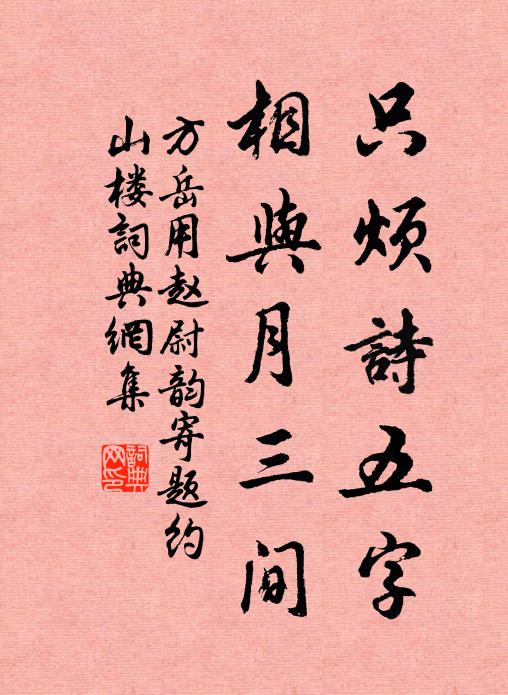 只烦詩五字
相與月三间
方岳用赵尉韵寄题约
山楼詞典網集
詞典
网印